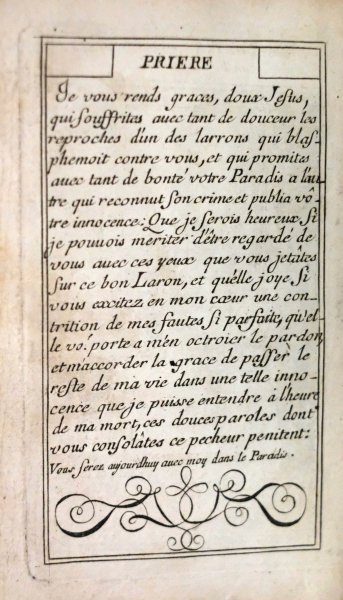 PRIERE
Je vous rends graces, doux Jesus,
qui souffrites avec tant de douceur les
reproches d'un des larrons qui blas-
phemoit contre vous, et qui promites
avec tant de bonté votre Paradis a l'au
tre qui reconnut son crime et publia vô-
tre innocence: Que je serois heureux, si
je pouuois meriter d'être regardé de
vous avec ces yeux que vous jetâtes
sur ce bon Laron, et quélle joye si
vous excitez en mon cœur une con-
trition de mes fautes si parfaite, qu'el-
le vo9. porte a m'en octroier le pardon,
et m'accorder la grace de passer le
reste de ma vie dans une telle inno-
cence que je puisse entendre à l'heure
de ma mort, ces douces paroles dont
vous consolâtes ce pecheur penitent:
Vous serez aujourdhuy avec moy dans le Paradis.